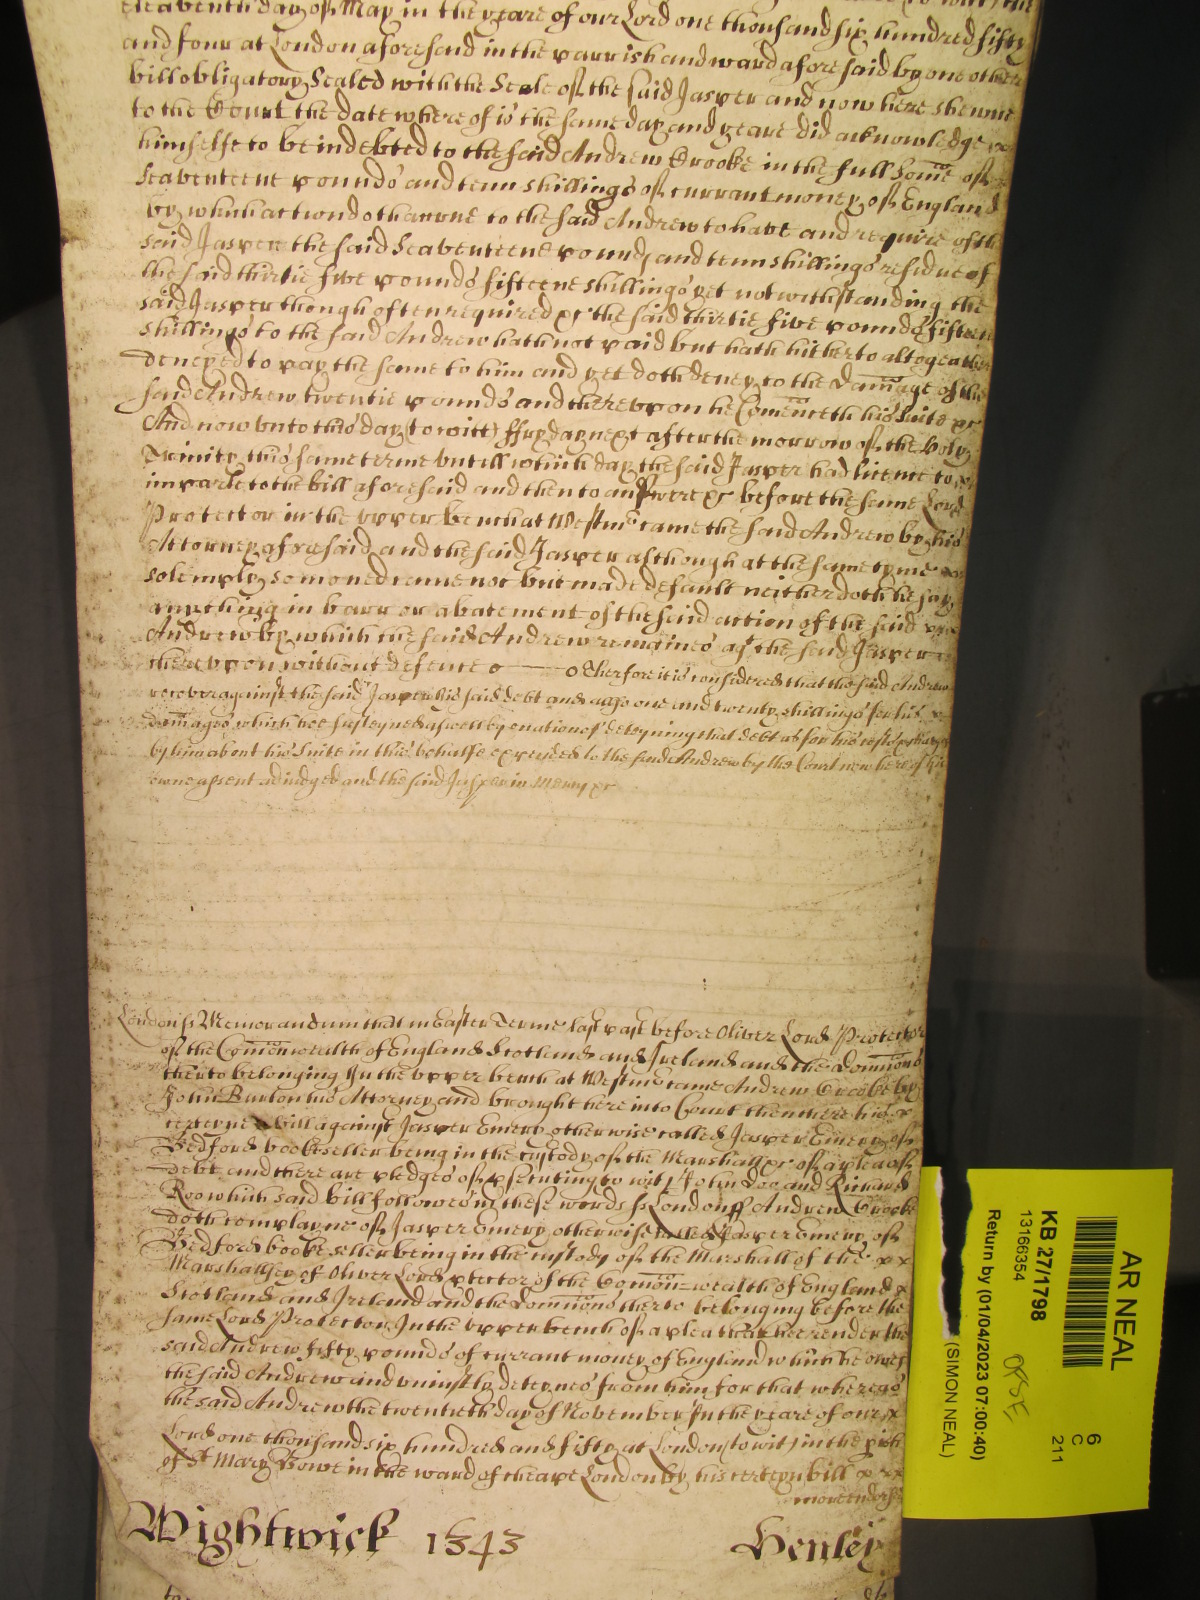 eleaventh day of May in the yeare of our Lord one thousand six hundred fifty
and four at London aforesaid in the parrish and ward aforesaid by one other
bill obligatory Sealed with the Seale of the said Jasper and now here shewne
to the Court the date whereof is the same day and yeare did acknowledge
himselfe to be indebted to the said Andrew Crooke in the full Some of
Seaventeene pounds and tenn shillings of currant money of England
by which action doth accrue to the said Andrew to have and require of the
said Jasper the said Seaventeene pounds and tenn shillings residue of
the said thirtie five pounds fifteene shillings yet notwithstanding the
said Jasper though often required &c the said thirtie five pounds fifteen
shillings to the said Andrew hath not paid but hath hitherto altogeather
denyed to pay the same to him and yet doth deney to the Damage of the
said Andrew twentie pounds and thereupon he Comenceth his Suite &c
And now unto this day (to witt) ffryday next after the morrow of the Holy
Trinity this same terme untill which day the said Jasper had licence to
imparle to the bill aforesaid and then to answere &c before the same Lord
Protector in the upper bench at Westmr came the said Andrew by his
Attorney aforesaid and the said Jasper although at the same tyme
solemply somoned came not but made default neither doth he say
anything in barr or abatement of the said action of the said
Andrew by which the said Andrew remaines agt the said Jasper
thereupon without defence o——o Therfore it is considered that the said Andrew
recover against the said Jasper his said debt and allso one and twenty shillings for his
damages which hee susteyned aswell by occation of deteyning that debt as for his costs & charges
by him about his Suite in this behalfe expended to the said Andrew by the Court now here of his
owne assent adjudged and the said Jasper in Mercy &c
London ss Memorandum that in Easter Terme last past before Oliver Lord Protector
of the Comonwealth of England Scotland and Ireland and the Dominions
therto belonging In the upper bench at Westmr came Andrew Crooke by
John Burton his Attorney and brought here into Court then there his
certeyne bill against Jasper Emery otherwise called Jasper Emery of
Bedford bookeseller being in the custody of the Marshall &c of a plea of
debt and there are pledges of psecuting to wit John Doe and Richard
Roo which said bill followes in these words ss London ss Andrew Crooke
doth complayne of Jasper Emery otherwise called Jasper Emery of
Bedford bookeseller being in the custody of the Marshall of the
Marshallsey of Oliver Lord ptector of the Comon=wealth of England
Scotland and Ireland and the Dominions therto belonging before the
same Lord Protector In the upper bench of a plea that hee render the
said Andrew fifty pounds of currant money of England which he owes
the said Andrew and uniustly deteynes from him for that whereas
the said Andrew the twentieth day of November In the yeare of our
Lord one thousand six hundred and fifty at London (to wit) in the pish
of St Mary Bowe in the ward of cheape London by his certeyn bill
Wightwick 1343 Henley
AR NEAL
6
C
211
KB 27/1798
13166354
Return by (01/04/2023 07:00:40)
(SIMON NEAL)